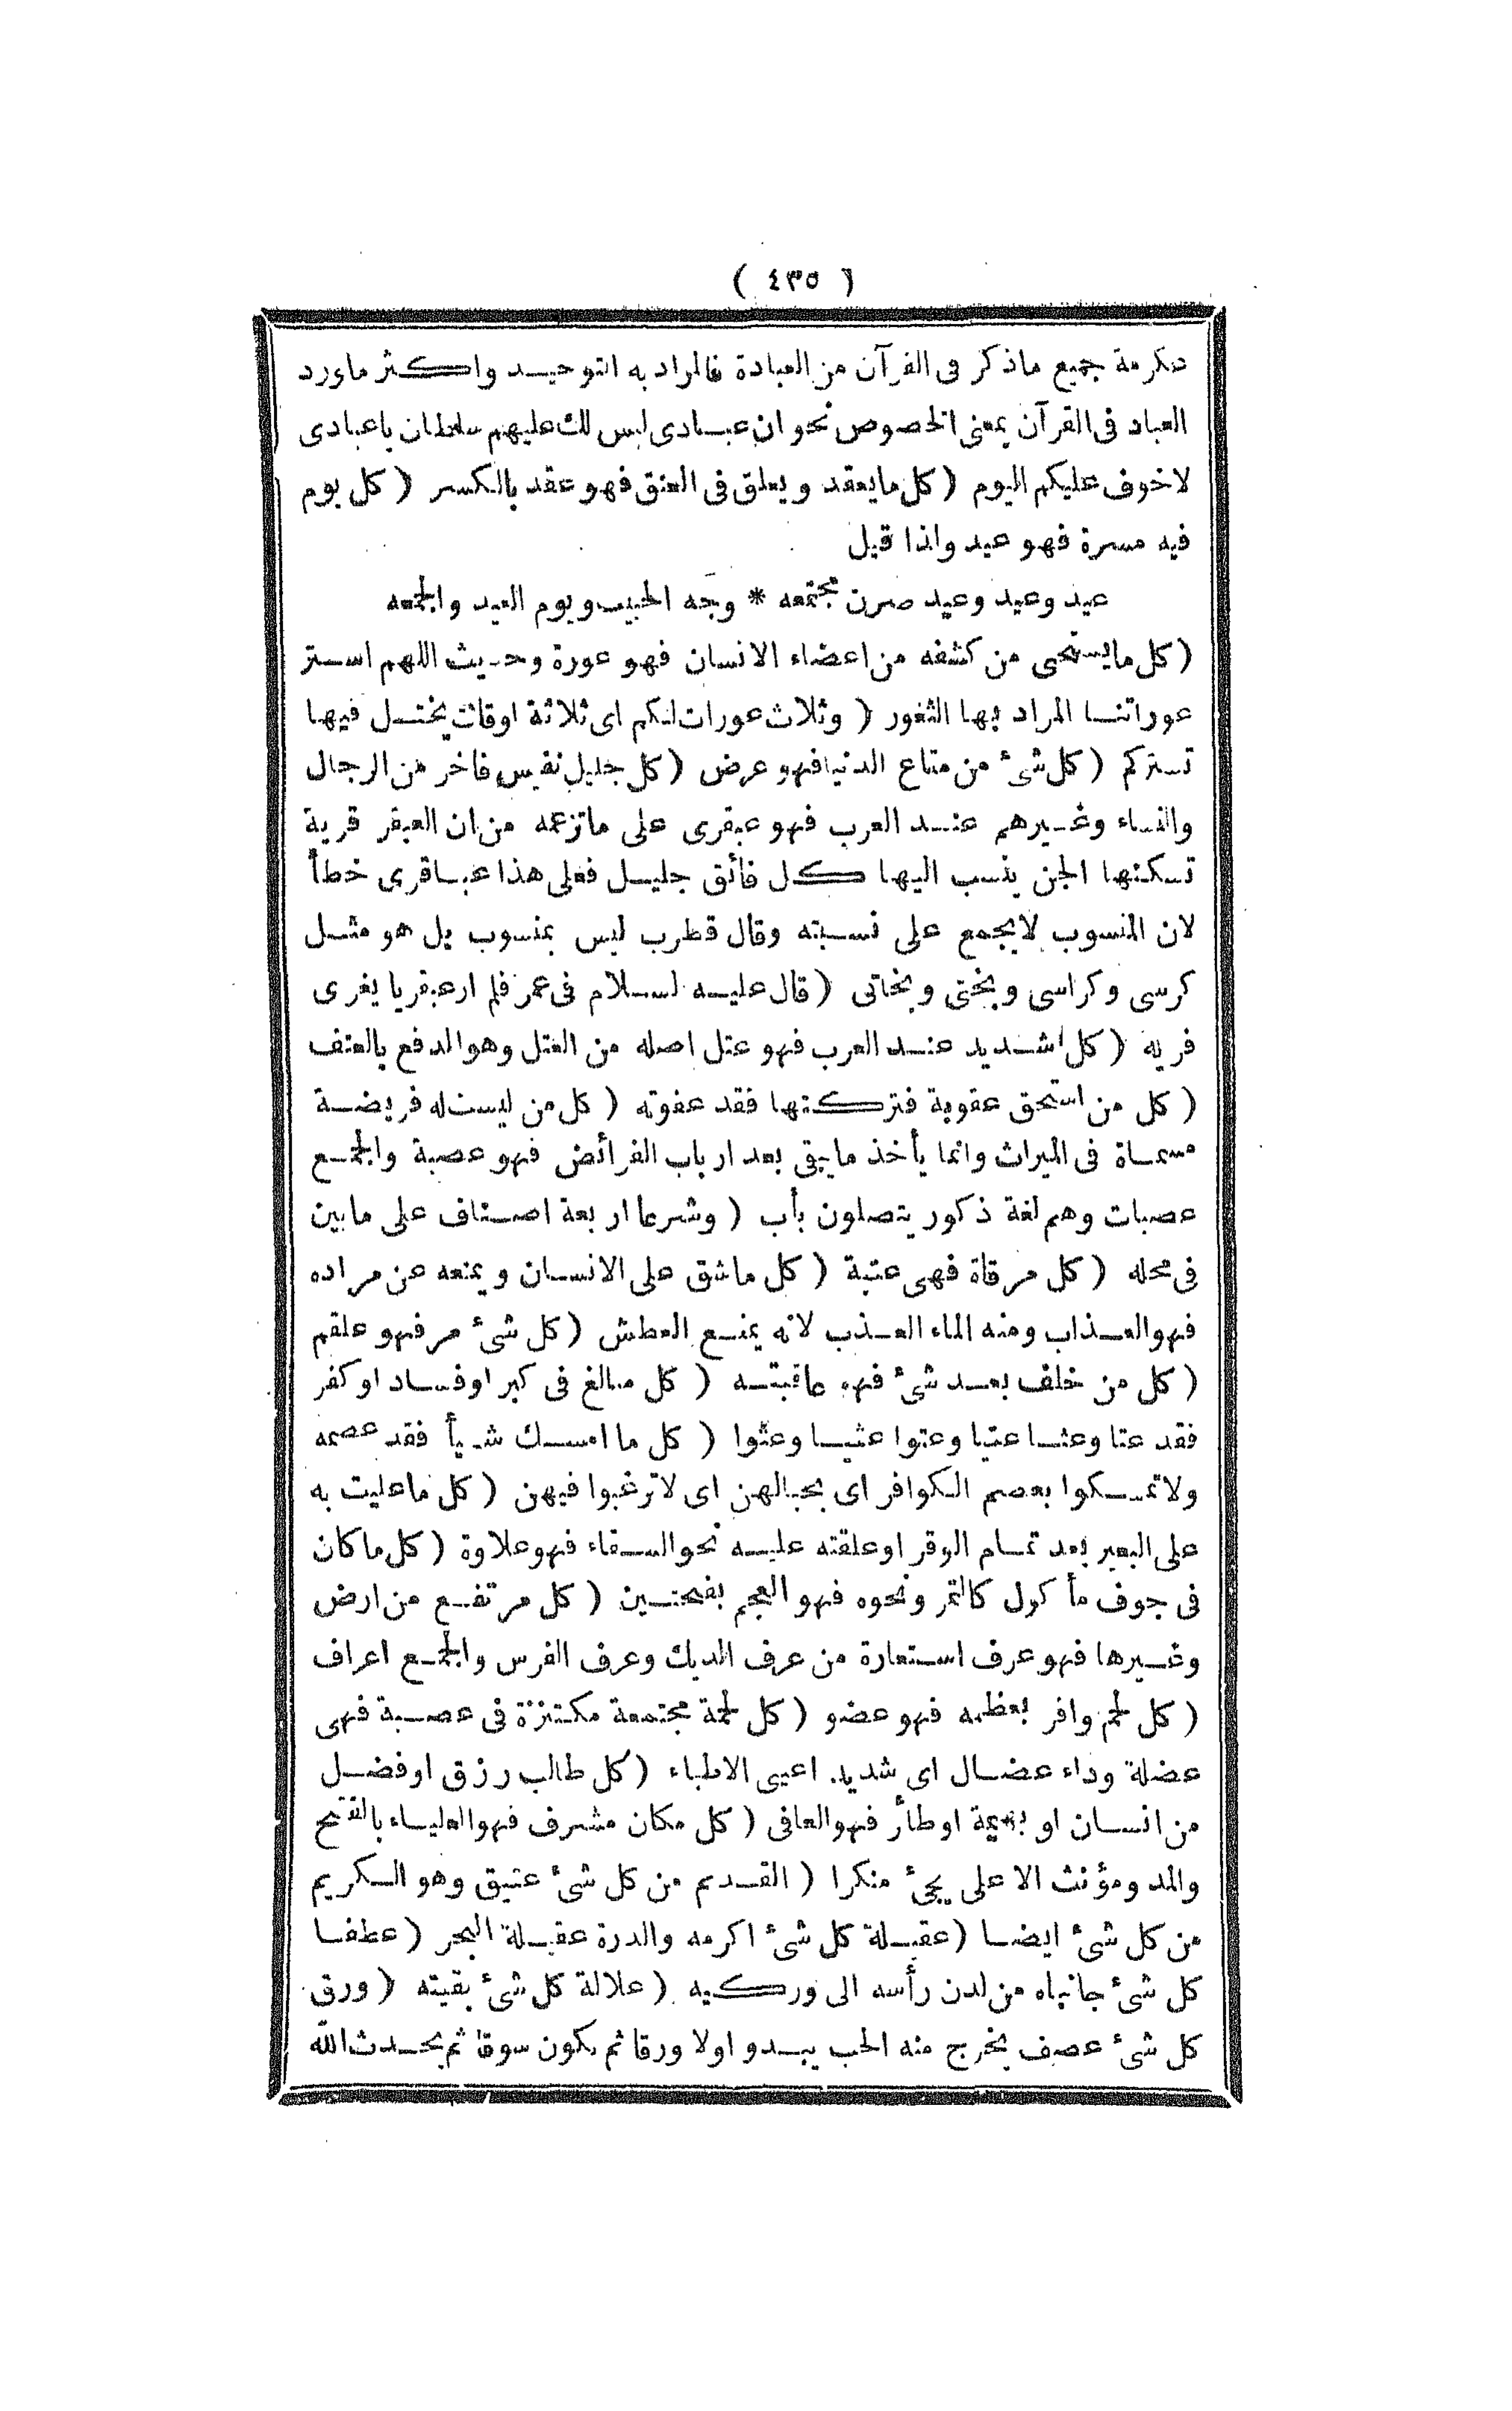 ( ٤٣٥ )
عكرمة جميع ماذكر فى القرآن من العبادة فالمراد به التوحيد واكثر ماورد
العباد فى القرآن بمعنى الخصوص نحو ان عبادى ليس لك عليهم سلطان ياعبادى
لا خوف عليكم اليوم ( كل ما يعقد ويعلق فى العنق فهو عقد بالكسر ( كل يوم
فيه مسرة فهو عيد واذا قيل
عيد وعيد وعيد صرن مجتمعه * وجه الحبيب ويوم العيد والجمعه
( كل مايستحى من كشفه من اعضاء الانسان فهو عورة وحديث اللهم استر
عوراتنا المراد بها الثغور ( وثلاث عورات لكم اى ثلاثة اوقات يختل فيها
تستركم ( كل شئ من متاع الدنيا فهو عرض ( كل جليل نفيس فاخر من الرجال
والنساء وغيرهم عند العرب فهو عبقرى على ماتزعمه من ان العبقر قرية
تسكنها الجن ينسب اليها كل فائق جليل فعلى هذا عباقرى خطأ
لان المنسوب لا يجمع على نسبته وقال قطرب ليس بمنسوب بل هو مثل
كرسى وكراسى وبختى وبخاتى ( قال عليه لسلام فى عمر فلم ار عبقريا يفرى
فريه ( كل شديد عند العرب فهو عتل اصله من العتل وهو الدفع بالعنف
( كل من استحق عقوبة فتركتها فقد عفوته ( كل من ليست له فريضة
مسماة فى الميراث وانما يأخذ مايبقى بعد ارباب الفرائض فهو عصبة والجمع
عصبات وهم لغة ذكور يتصلون بأب ( وشرعا اربعة اصناف على مابين
فى محله ( كل مرقاة فهى عتبة ( كل ماشق على الانسان ويمنعه عن مراده
فهو العذاب ومنه الماء العذب لانه يمنع العطش ( كل شئ مر فهو علقم
( كل من خلف بعد شئ فهو عاقبته ( كل مبالغ فى كبر اوفساد او كفر
فقد عتا وعثا عتيا وعتوا عثيا وعثوا ( كل ما امسك شيأ فقد عصمه
ولا تمسكوا بعصم الكوافر اى بحبالهن اى لا ترغبوا فيهن ( كل ماعليت به
على البعير بعد تمام الوقر اوعلقته عليه نحو السقاء فهو علاوة ( كل ما كان
فى جوف مأكول كالتمر ونحوه فهو العجم بفتحتين ( كل مرتفع من ارض
وغيرها فهو عرف استعارة من عرف الديك وعرف الفرس والجمع اعراف
( كل لحم وافر بعظمه فهو عضو ( كل لحمة مجتمعة مكتنزة فى عصبة فهى
عضلة وداء عضال اى شديد اعيى الاطباء ( كل طالب رزق اوفضل
من انسان او بهيمة اوطائر فهو العافى ( كل مكان مشرف فهو العلياء بالفتح
والمد ومؤنث الاعلى يجئ منكرا ( القديم من كل شئ عتيق وهو الكريم
من كل شئ ايضا ( عقيلة كل شئ اكرمه والدرة عقيلة البحر ( عطفا
كل شئ جانباه من لدن رأسه الى وركيه ( علالة كل شئ بقيته ( ورق
كل شئ عصف يخرج منه الحب يبدو اولا ورقا ثم يكون سوقا ثم يحدث الله